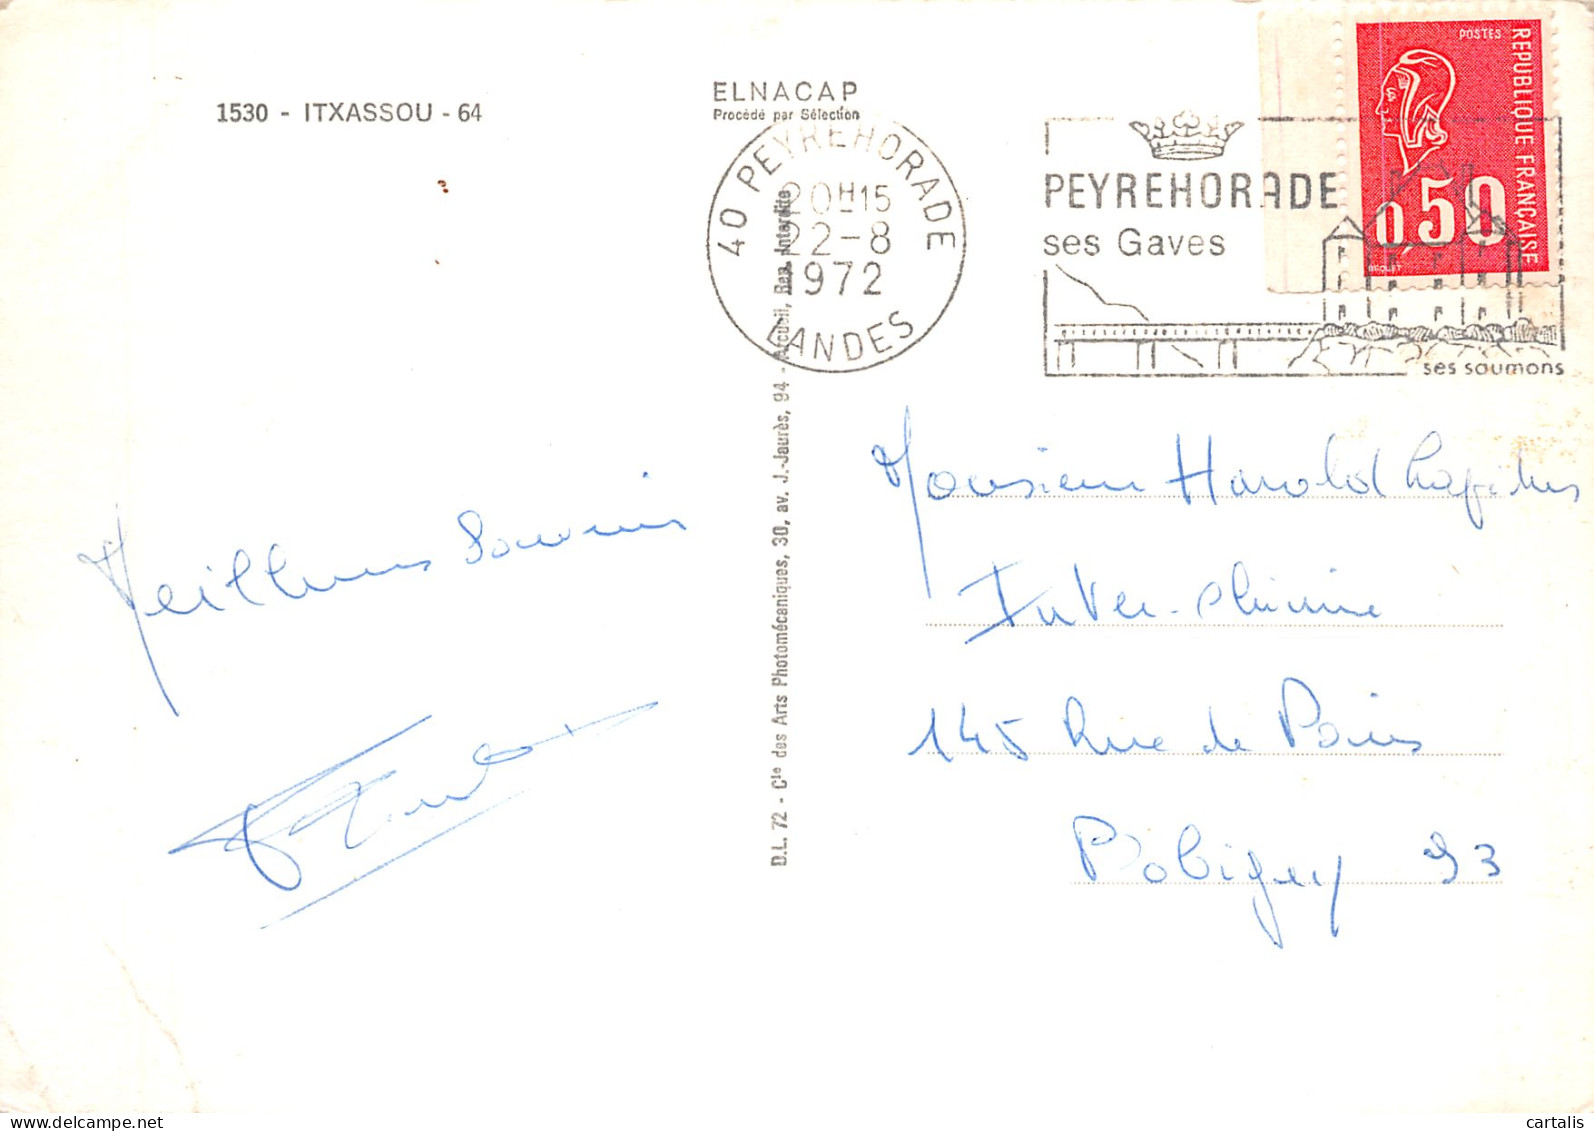 1530 - ITXASSOU - 64
ELNACAP
Procédé par Sélection
40 PEYREHORADE
20H15
22-8
1972
LANDES
PEYREHORADE
ses Gaves
ses saumons
POSTES
REPUBLIQUE FRANÇAISE
0,50
BEQUET
D.L. 72 - Cie des Arts Photomécaniques, 30, av. J.-Jaurès, 94 - Arcueil, Rep. Interdite
Meilleurs Souvenirs
Monsieur Harold
Inter-chimie
145 Rue de Paris
Bobigny 93
cartalis